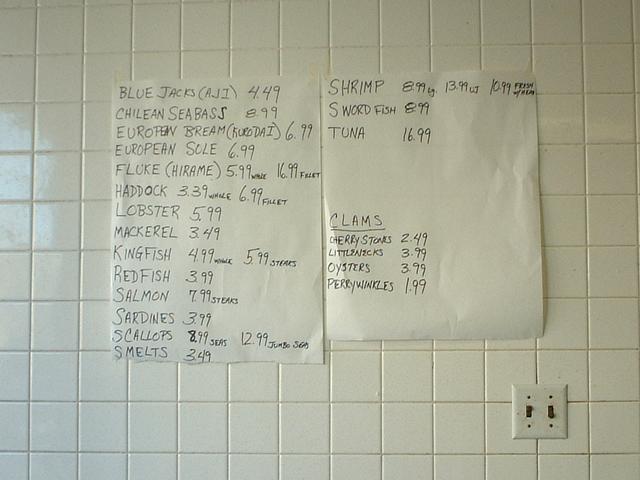 BLUE JACKS (AJI) 4.49
CHILEAN SEABASS 8.99
EUROPEAN BREAM (KURODAI) 6.99
EUROPEAN SOLE 6.99
FLUKE (HIRAME) 5.99 WHOLE 16.99 FILLET
HADDOCK 3.39 WHOLE 6.99 FILLET
LOBSTER 5.99
MACKEREL 3.49
KINGFISH 4.99 WHOLE 5.99 STEAKS
REDFISH 3.99
SALMON 7.99 STEAKS
SARDINES 3.99
SCALLOPS 8.99 SEAS 12.99 JUMBO SEAS
SMELTS 3.49
SHRIMP 8.99 lg. 13.99 10.99 FRESH W/HEAD
SWORD FISH 8.99
TUNA 16.99
CLAMS
CHERRYSTONES 2.49
LITTLENECKS 3.99
OYSTERS 3.99
PERRYWINKLES 1.99